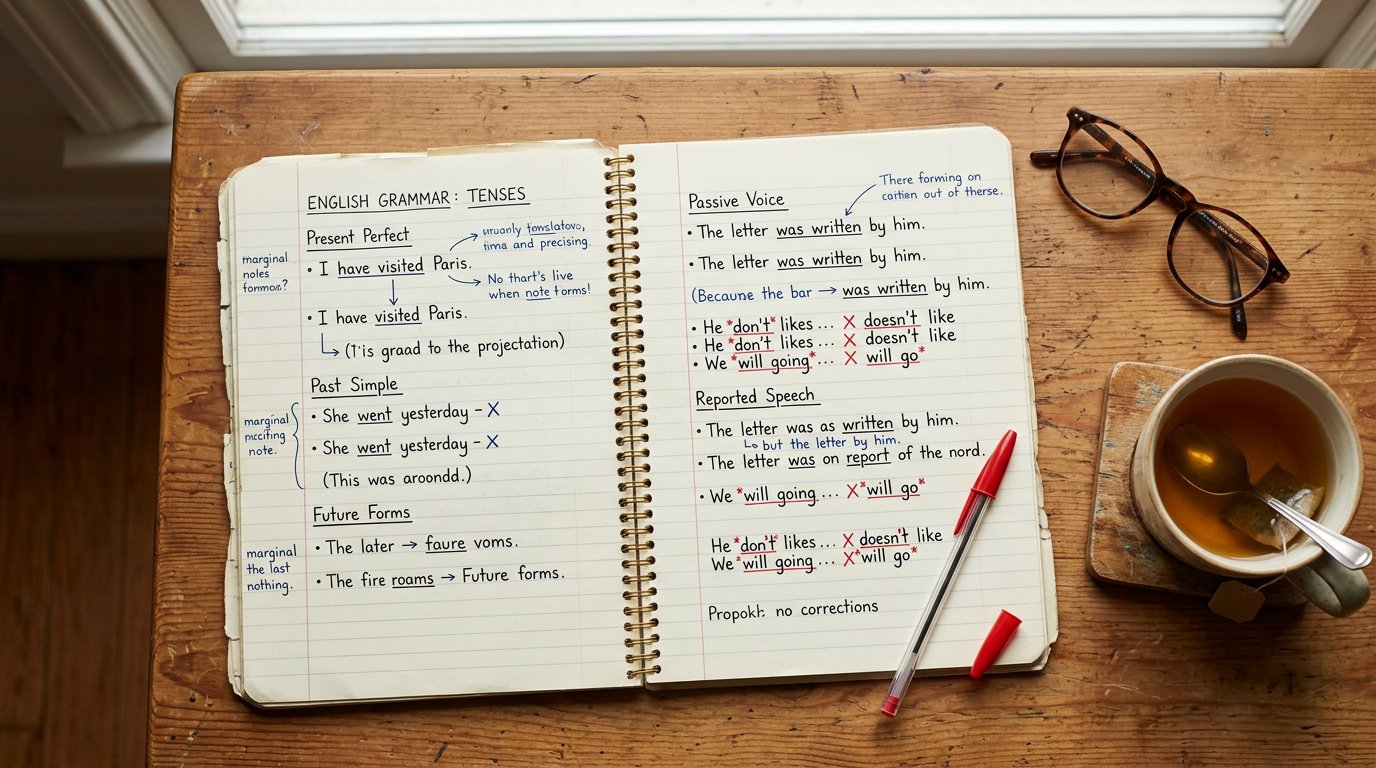 ENGLISH GRAMMAR: TENSES
Present Perfect
time and precising.
• I have visited Paris.
marginal
notes
No thart's live
when note forms!
• I have visited Paris.
→ (T'is graad to the projectation)
Past Simple
• She went yesterday – X
marginal
note.
• She went yesterday – X
(This was aroondd.)
Future Forms
• The later → faure voms.
marginal
the last
nothing.
• The fire roams → Future forms.
Passive Voice
There forming on
out of therse.
• The letter was written by him.
• The letter was written by him.
(Becaune the bar → was written by him.
• He *don't* likes ... X doesn't like
• He *don't likes ... X doesn't like
• We *will going* ... X will go*
Reported Speech
• The letter was as written by him.
↳ but the letter by him.
• The letter was on report of the nord.
• We *will going ... X *will go*
He *don't likes ... X doesn't like
We *will going ... X *will go*
no corrections